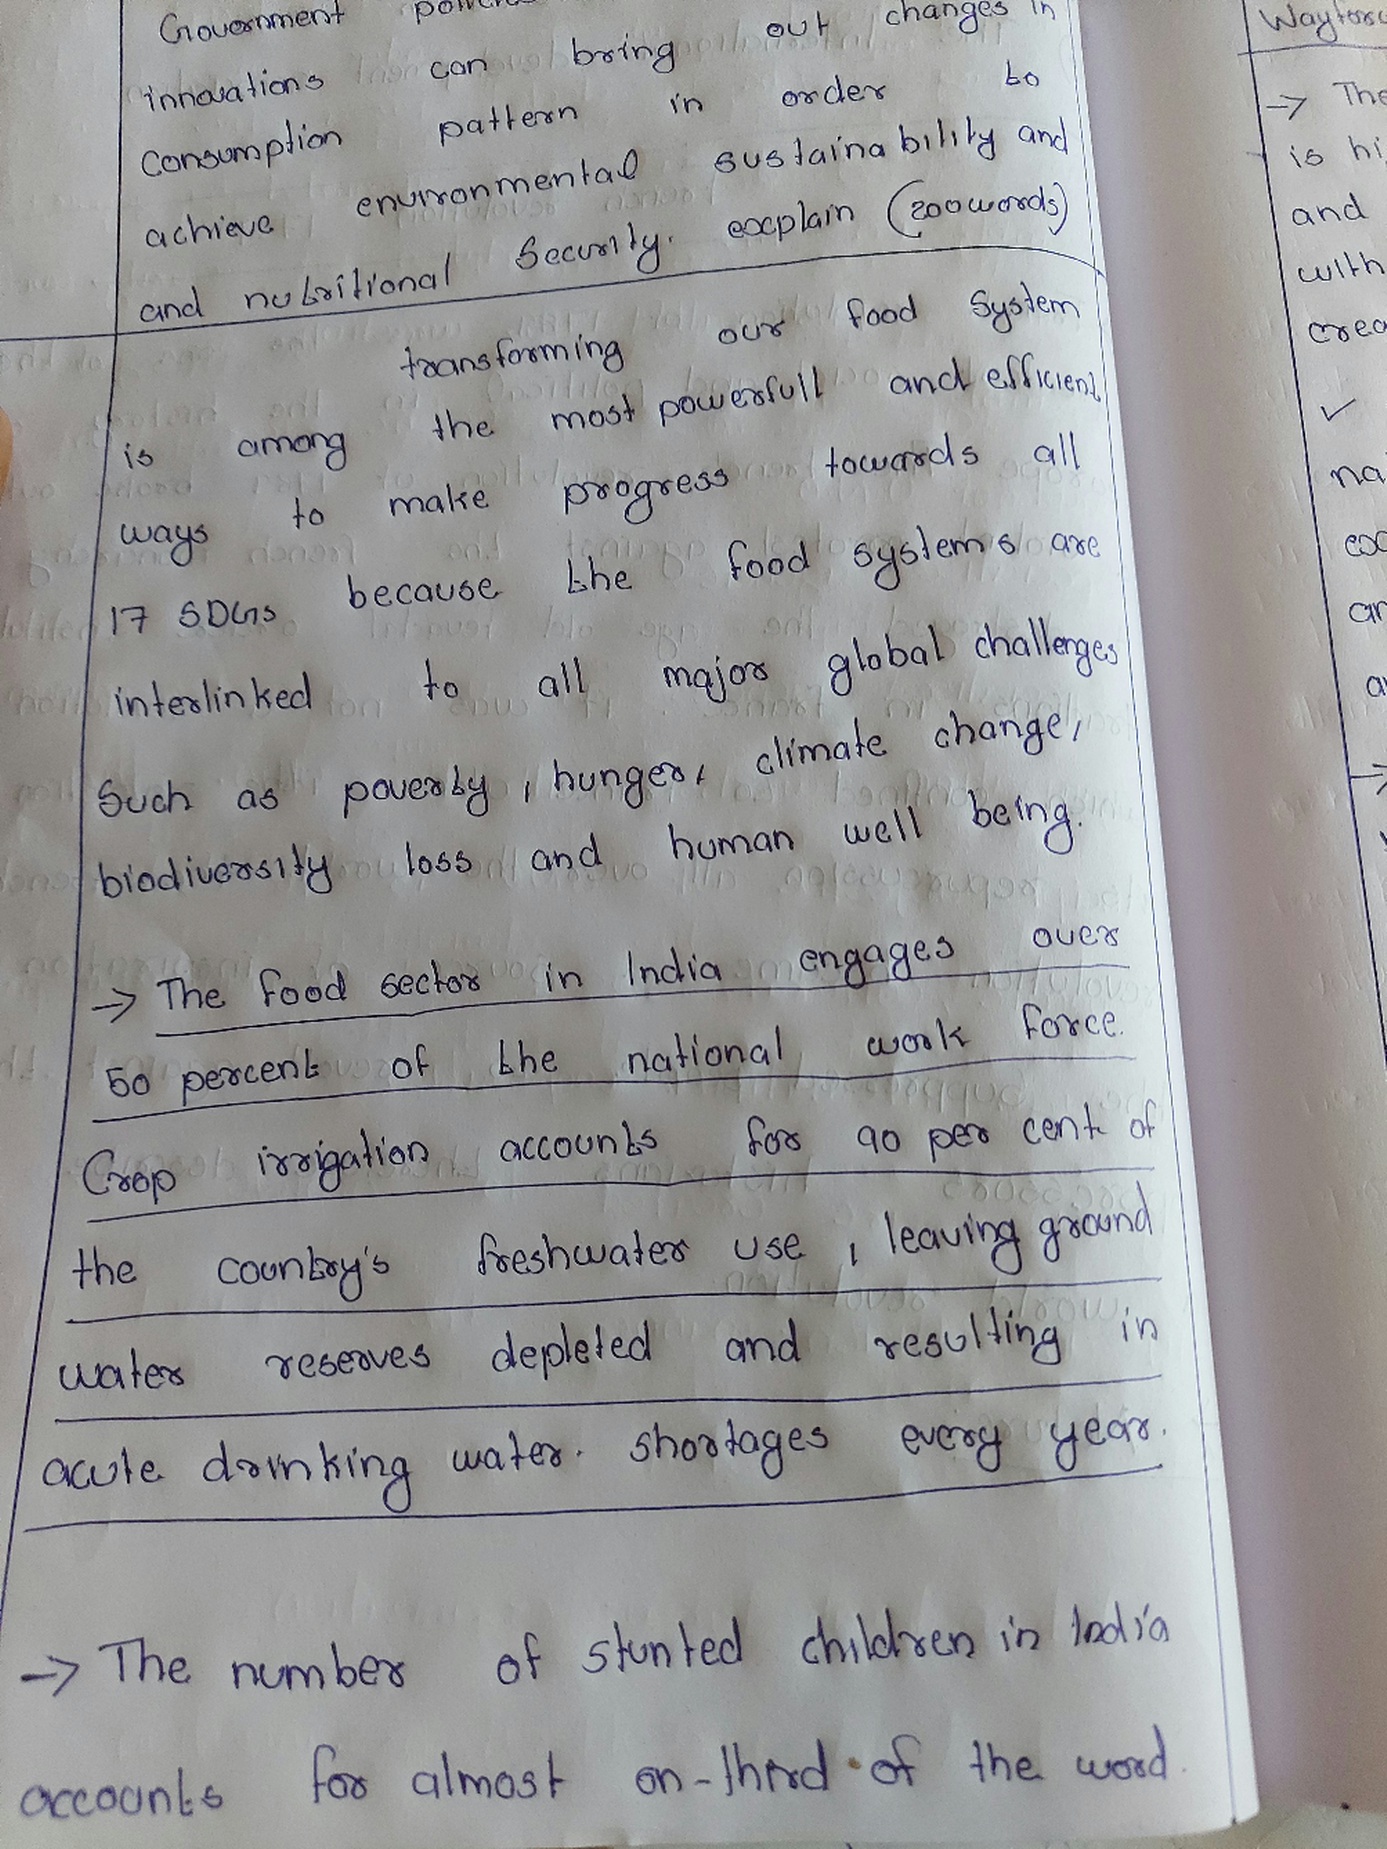 Government
innovations can bring out changes in
Consumption pattern in order to
achieve environmental sustainability and
and nutritional Security. explain (200words)
transforming our food System
is among the most powerfull and efficient
ways to make progress towards all
17 SDGs because the food systems are
interlinked to all major global challenges
Such as poverty, hunger, climate change,
biodiversity loss and human well being.
-> The food sector in India engages over
50 percent of the national work force.
Crop irrigation accounts for 90 per cent of
the country's freshwater use, leaving ground
water reserves depleted and resulting in
acute drinking water. shortages every year.
-> The number of stunted children in India
accounts for almost on-third of the word.
-> The
is
and
with
✓